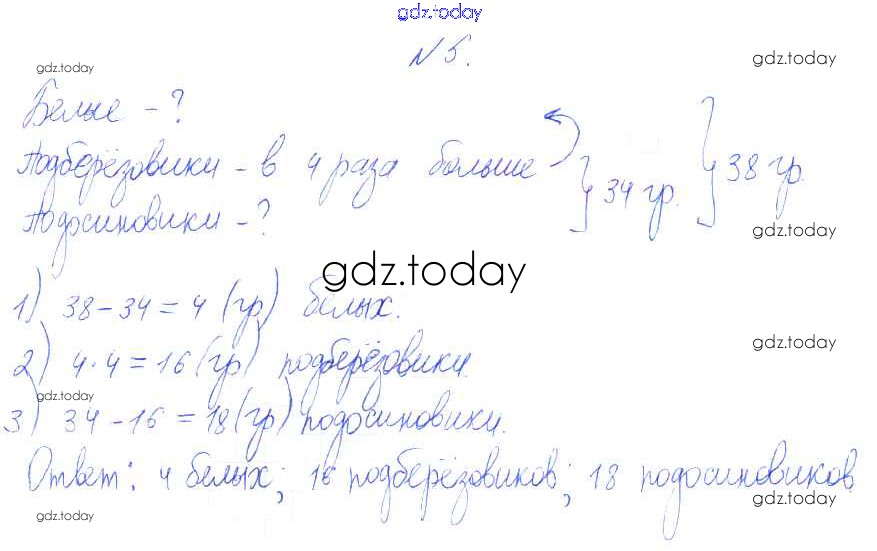 gdz.today
N 5.
gdz.today
gdz.today
Белые - ?
Подберёзовики - в 4 раза больше } 34 гр. } 38 гр.
Подосиновики - ?
gdz.today
1) 38 - 34 = 4 (гр) белых.
2) 4 · 4 = 16 (гр) подберёзовики.
gdz.today
gdz.today
3) 34 - 16 = 18 (гр) подосиновики.
Ответ: 4 белых; 16 подберёзовиков; 18 подосиновиков
gdz.today
gdz.today